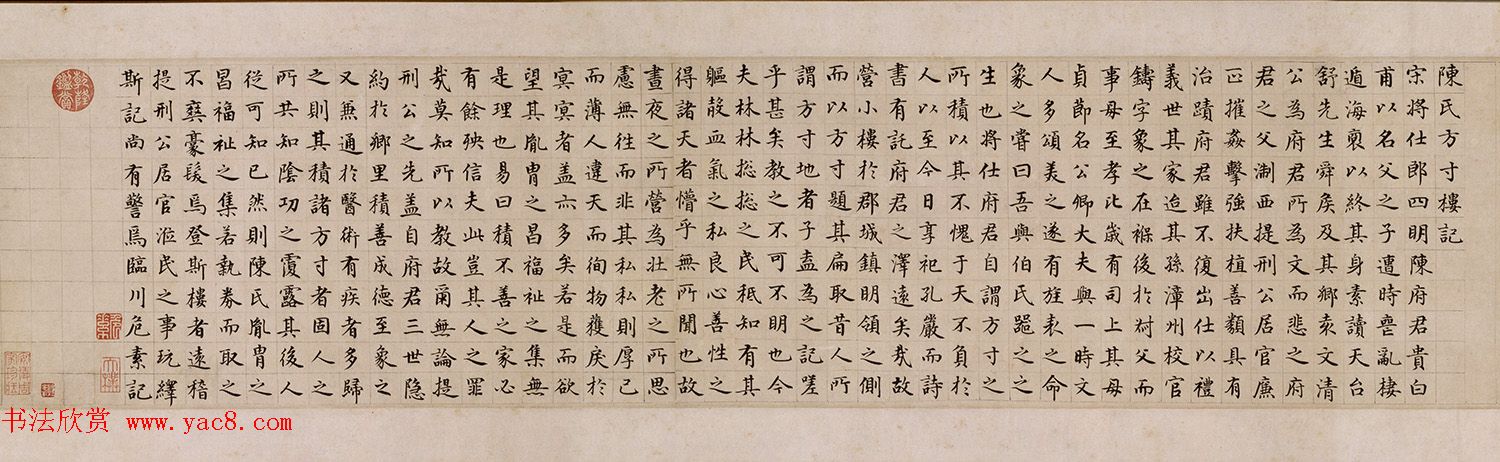 陳氏方寸樓記
宋將仕郎四明陳府君貴白
甫以名父之子遭時喪亂棲
遁海裔以終其身素讀天台
舒先生舜矦及其鄉袁文清
公為府君所為文而悲之府
君之父淛西提刑公居官廉
正摧姦擊強扶植善類具有
治蹟府君雖不復出仕以禮
義世其家迨其孫漳州校官
鑄字象之在褓後於叔父而
事母至孝比歲有司上其母
貞節名公卿大夫與一時文
人多頌美之遂有旌表之命
象之嘗曰吾與伯氏之之
生也將仕府君自謂方寸之
所積以其不愧于天不負於
人以至今日享祀孔嚴而詩
書有託府君之澤遠矣哉故
營小樓於郡城鎮明領之側
而以方寸題其扁取昔人所
謂方寸地者子盍為之記嗟
乎甚矣教之不可不明也今
夫林林摠摠之民秪知有其
軀殼血氣之私良心善性之
得諸天者懵乎無所聞也故
晝夜之所營為壯老之所思
慮無徃而非其私私則厚己
而薄人違天而徇物獲戾於
冥冥者盖亦多矣若是而欲
望其胤胄之昌福祉之集無
是理也易曰積不善之家必
有餘殃信夫此豈其人之罪
哉莫知所以教故爾無論提
刑公之先盖自府君三世隐
約於鄉里積善成德至象之
又兼通於醫術有疾者多歸
之則其積諸方寸者固人之
所共知陰功之覆露其後人
從可知已然則陳氏胤胄之
昌福祉之集若執券而取之
不爽豪髮焉登斯樓者遠稽
提刑公居官涖民之事玩繹
斯記尚有警焉臨川危素記
乾隆鑑賞
书法欣赏 www.yac8.com